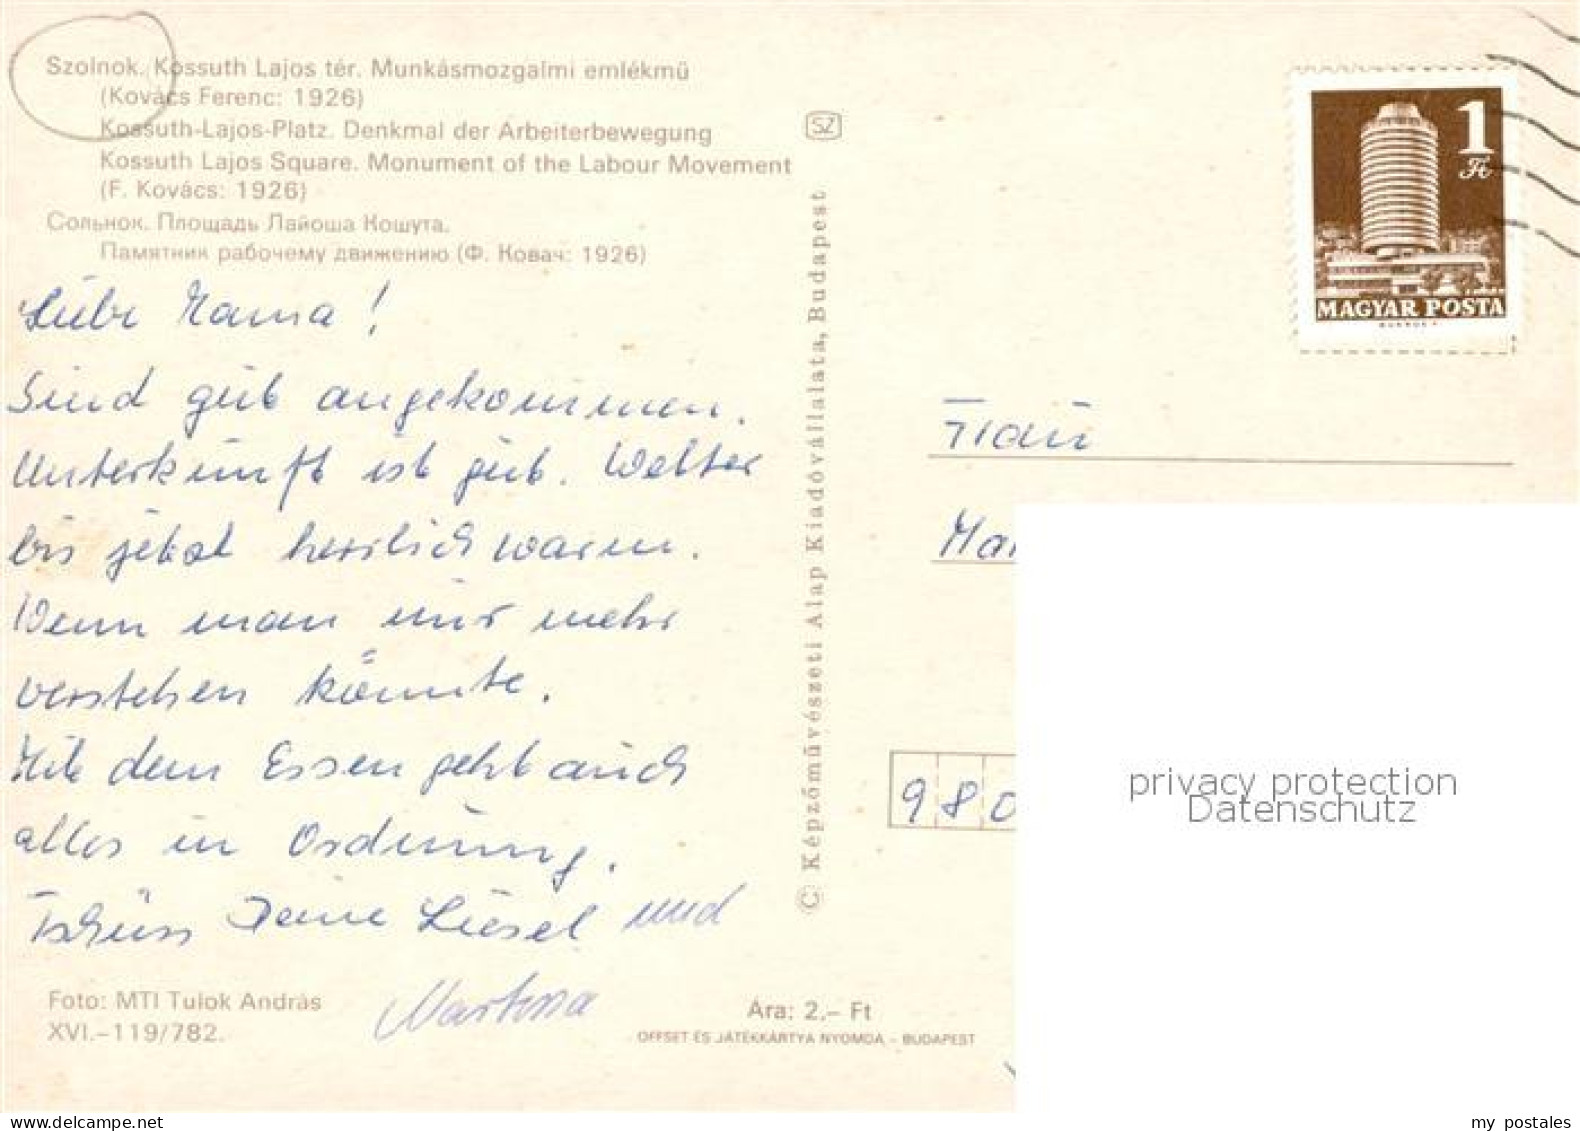 Szolnok. Kossuth Lajos tér. Munkásmozgalmi emlékmű
(Kovács Ferenc: 1926)
Kossuth-Lajos-Platz. Denkmal der Arbeiterbewegung
Kossuth Lajos Square. Monument of the Labour Movement
(F. Kovács: 1926)
Сольнок. Площадь Лайоша Кошута.
Памятник рабочему движению (Ф. Ковач: 1926)
Liebe Mama!
Sind gut angekommen.
Unterkunft ist gut. Wetter
bis jetzt herrlich warm.
Wenn man nur mehr
verstehen könnte.
Mit dem Essen geht auch
alles in Ordnung.
Tschüss Deine Liesel und
Foto: MTI Tulok András
XVI.–119/782.
Ára: 2.– Ft
OFFSET ÉS JÁTÉKKÁRTYA NYOMDA – BUDAPEST
SZ
© Képzőművészeti Alap Kiadóvállalata, Budapest
1
Ft
MAGYAR POSTA
Frau
980
privacy protection
Datenschutz
www.delcampe.net
my_postales